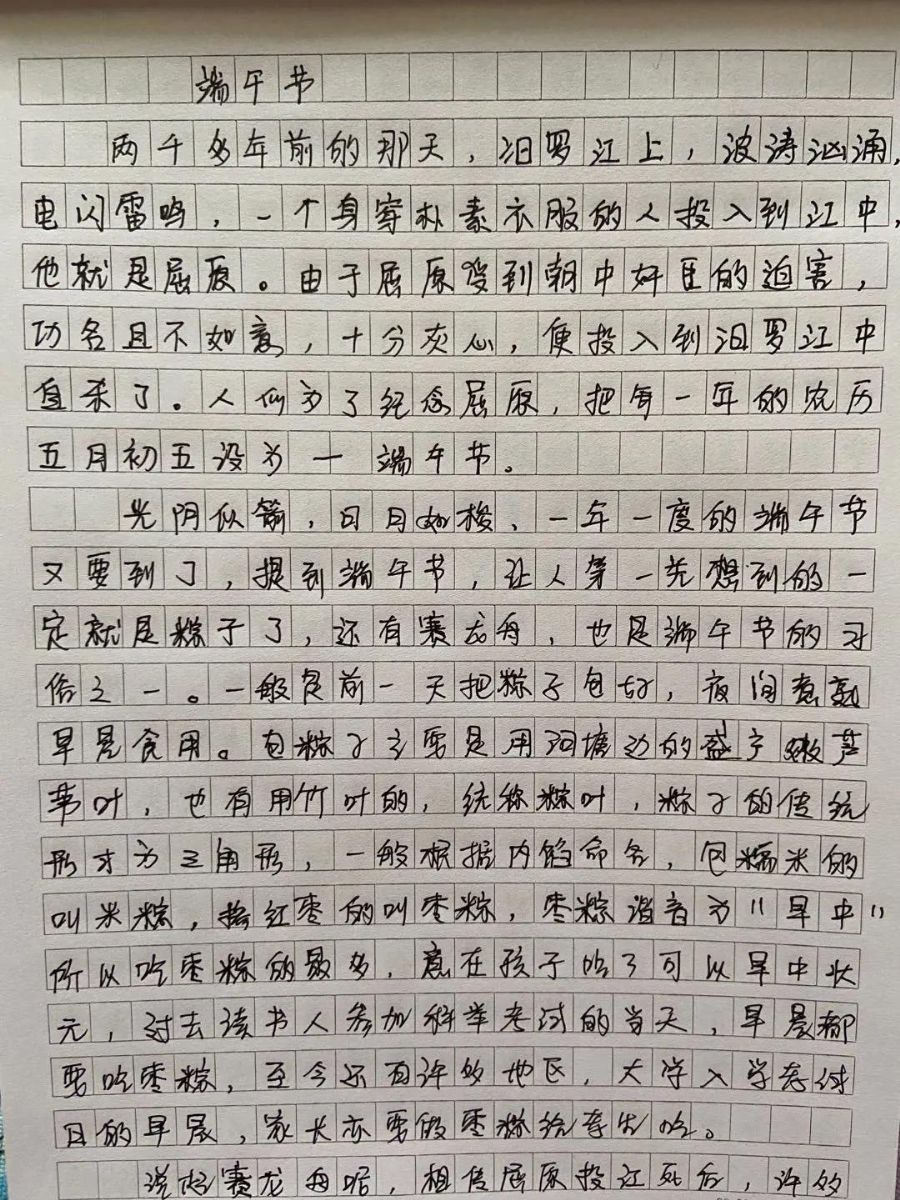 端午节
两千多年前的那天，汨罗江上，波涛汹涌，
电闪雷鸣，一个身穿朴素衣服的人投入到江中，
他就是屈原。由于屈原受到朝中奸臣的迫害，
功名且不如意，十分灰心，便投入到汨罗江中
自杀了。人们为了纪念屈原，把每一年的农历
五月初五设为一端午节。
光阴似箭，日月如梭、一年一度的端午节
又要到了，提到端午节，让人第一先想到的一
定就是粽子了，还有赛龙舟，也是端午节的习
俗之一。一般是前一天把粽子包好，夜间煮熟
早晨食用。包粽子主要是用河塘边的盛产嫩芦
苇叶，也有用竹叶的，统称粽叶，粽子的传统
形才为三角形，一般根据内馅命名，包糯米的
叫米粽，掺红枣的叫枣粽，枣粽谐音为"早中"
所以吃枣粽的最多，意在孩子吃了可以早中状
元，过去读书人参加科举考试的当天，早晨都
要吃枣粽，至今还有许多地区，大学入学考试
日的早晨，家长亦要做枣粽给考生吃。
说起赛龙舟唔，相传屈原投江死后，许的